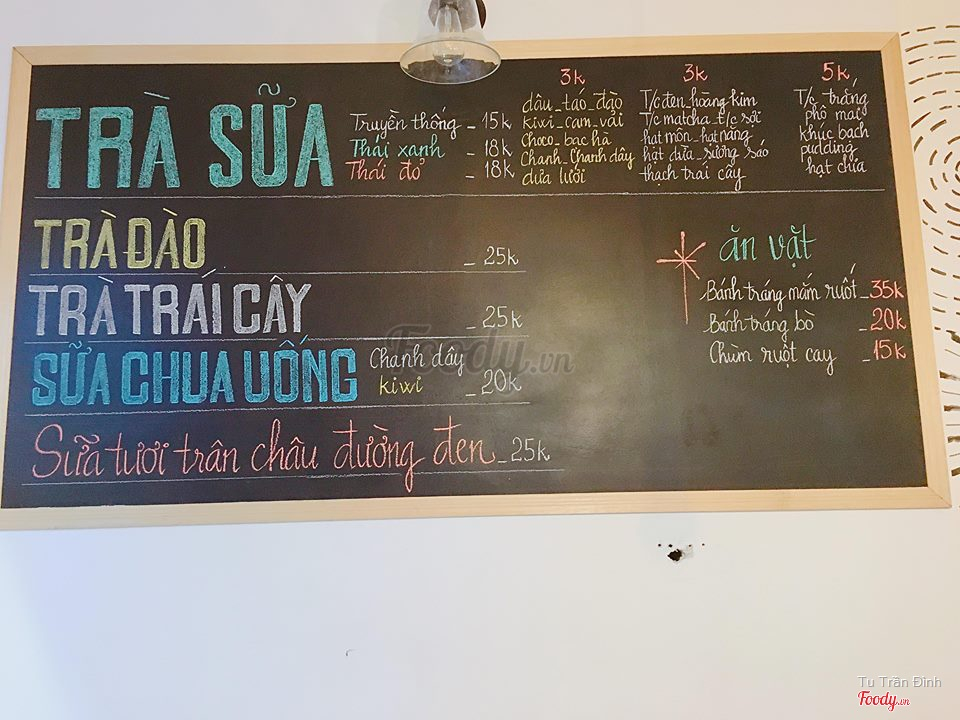 TRÀ SỮA
Truyền thống - 15k
Thái xanh - 18k
Thái đỏ - 18k
3k
dâu_táo_đào
kiwi_cam_vải
Choco_bạc hà
Chanh_Chanh dây
dưa lưới
3k
T/c đen_hoàng kim
T/c matcha_t/c sợi
hạt môn_hạt năng
hạt dừa_sương sáo
thạch trái cây
5k
T/c trắng
phô mai
khúc bạch
pudding
hạt chia
TRÀ ĐÀO - 25k
TRÀ TRÁI CÂY - 25k
SỮA CHUA UỐNG Chanh dây
kiwi - 20k
Sữa tươi trân châu đường đen - 25k
ăn vặt
Bánh tráng mắm ruốt - 35k
Bánh tráng bò - 20k
Chùm ruột cay - 15k
Foody.vn
Tu Trần Đình
Foody.vn